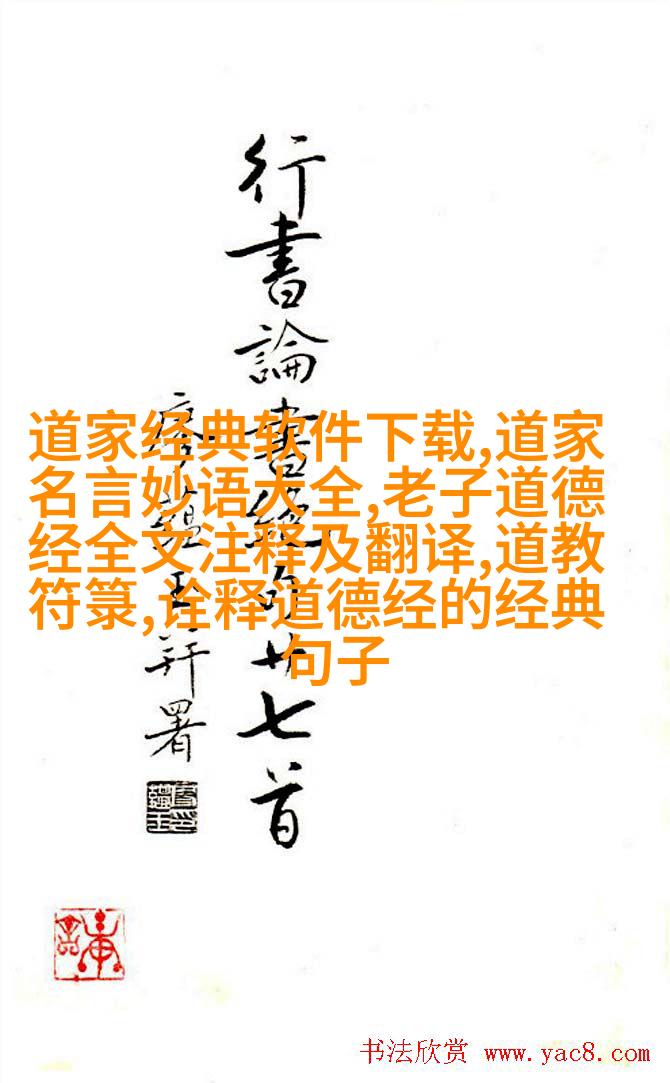 行書論書絕句廿七首
廖蘊玉署
道家经典软件下载,道家
名言妙语大全,老子道德
经全文注释及翻译,道教
符箓,诠释道德经的经典
句子
书法欣赏 www.yac8.com